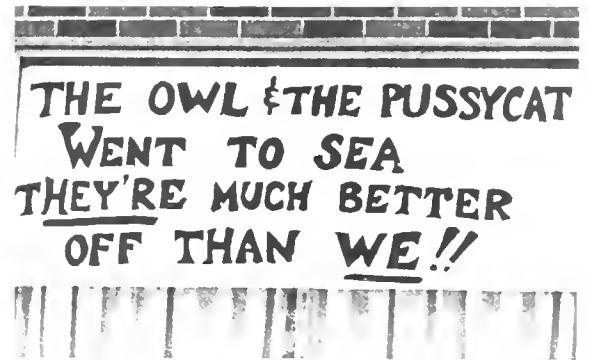 THE OWL & THE PUSSYCAT
WENT TO SEA
THEY'RE MUCH BETTER
OFF THAN WE!!